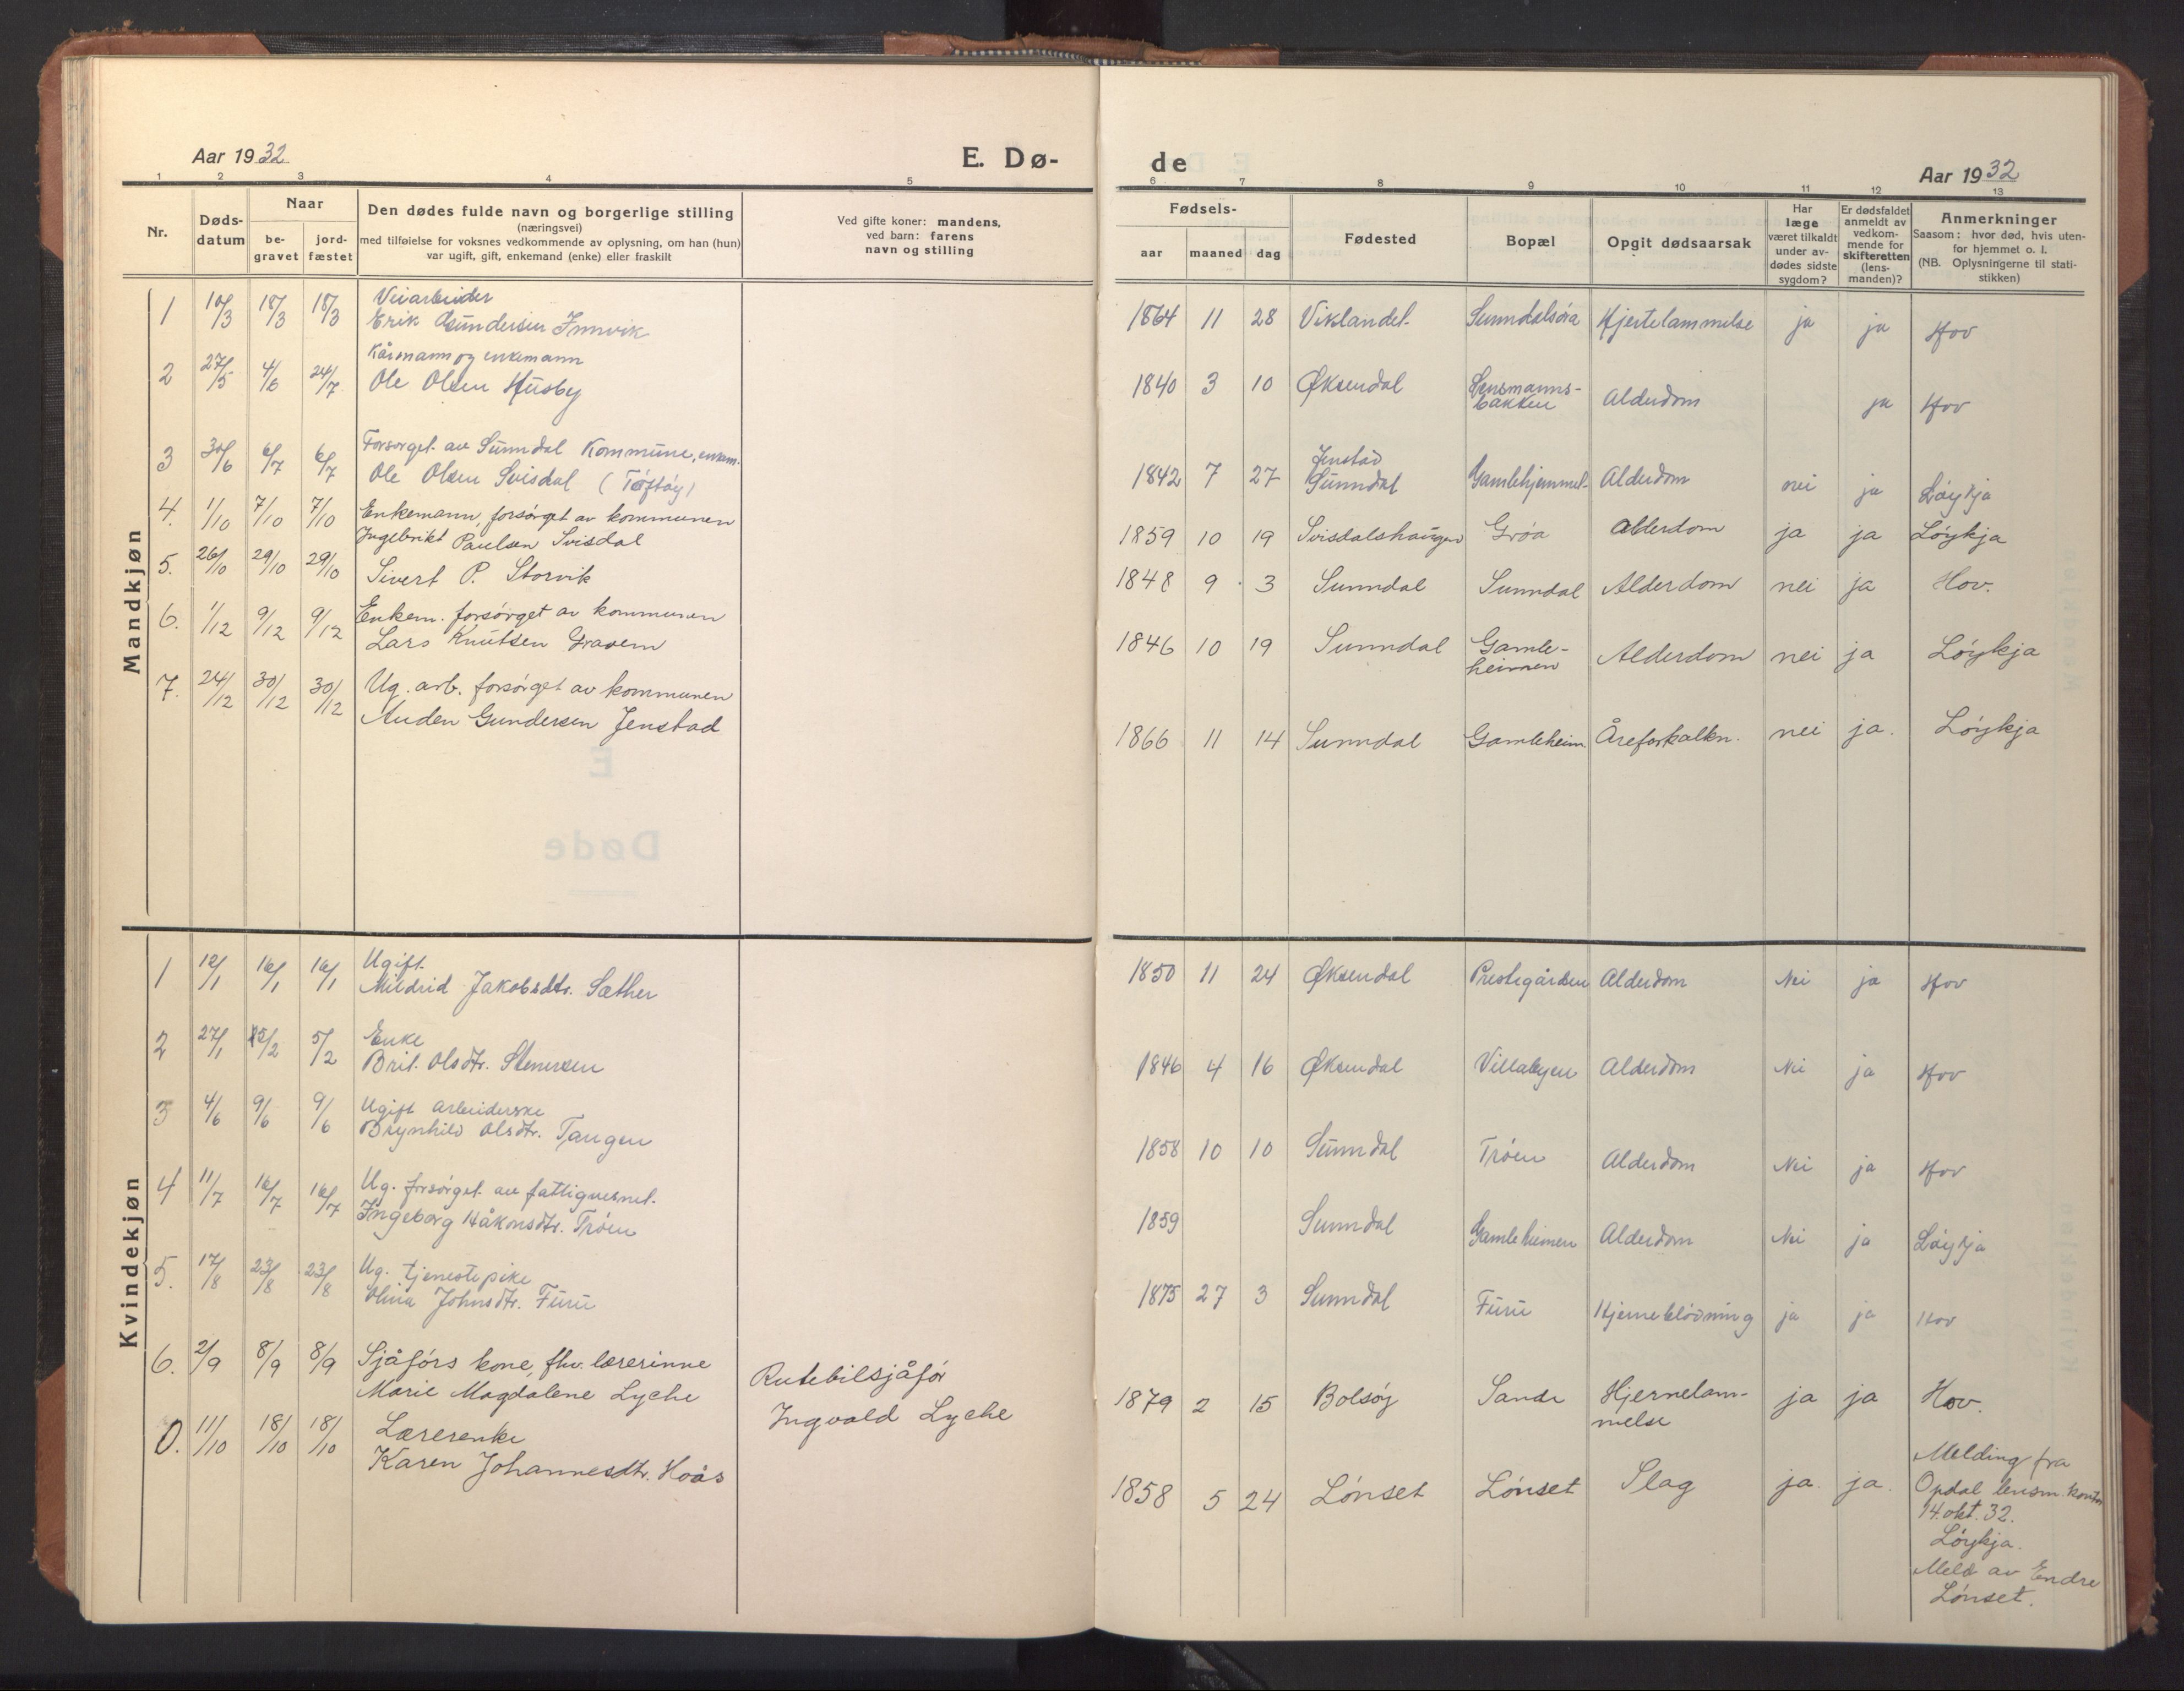 Aar 1932
E. Dø-
1 2 3 4 5
Nr.
Døds-
datum
Naar
be-
gravet
jord-
fæstet
Den dødes fulde navn og borgerlige stilling
(næringsvei)
med tilføielse for voksnes vedkommende av oplysning, om han (hun)
var ugift, gift, enkemand (enke) eller fraskilt
Ved gifte koner: mandens,
ved barn: farens
navn og stilling
Mandkjøn
1 10/3 18/3 18/3 Veiarbeider
Erik Gundersen Innvik
2 27/5 4/6 24/7 Kårmann og enkemann
Ole Olsen Husby
3 30/6 6/7 6/7 Forsørget av Sunndal Kommune, enkem.
Ole Olsen Svisdal (Tøftøy)
4. 1/10 7/10 7/10 Enkemann, forsørget av kommunen
Ingebrikt Paulsen Svisdal
5. 26/10 29/10 29/10 Sivert P. Storvik
6. 1/12 9/12 9/12 Enkem. forsørget av kommunen
Lars Knutsen Gravem
7. 24/12 30/12 30/12 Ug. arb. forsørget av kommunen
Auden Gundersen Jenstad
Kvindekjøn
1 12/1 16/1 16/1 Ugift
Mildrid Jakobsdtr. Sæther
2 27/1 5/2 5/2 Enke
Brit Olsdtr. Stenersen
3 4/6 9/6 9/6 Ugift arbeiderske
Brynhild Olsdtr. Tangen
4 11/7 16/7 16/7 Ug. forsørget av fattigvesnet.
Ingeborg Håkonsdtr. Trøen
5. 17/8 23/8 23/8 Ug. tjenestepike
Olina Johnsdtr. Furu
6. 2/9 8/9 8/9 Sjåførs kone, fhv. lærerinne
Marie Magdalene Lyche
Rutebilsjåfør
Ingvald Lyche
0. 11/10 18/10 18/10 Lærerenke
Karen Johannesdtr. Hoås
de
Aar 1932
6 7 8 9 10 11 12 13
Fødsels-
aar maaned dag
Fødested
Bopæl
Opgit dødsaarsak
Har
læge
været tilkaldt
under av-
dødes sidste
sygdom?
Er dødsfaldet
anmeldt av
vedkom-
mende for
skifteretten
(lens-
manden)?
Anmerkninger
Saasom: hvor død, hvis uten-
for hjemmet o. l.
(NB. Oplysningerne til stati-
stikken)
1864 11 28 Viklandet Sunndalsøra Hjertelammelse ja ja Hov
1840 3 10 Øksendal Lensmanns-
bakken Alderdom ja Hov
1842 7 27 Jenstad
Sunndal Gamlehjemmet Alderdom nei ja Løykja
1859 10 19 Svisdalshaugen Grøa Alderdom ja ja Løykja
1848 9 3 Sunndal Sunndal Alderdom nei ja Hov.
1846 10 19 Sunndal Gamle-
heimen Alderdom nei ja Løykja
1866 11 14 Sunndal Gamleheim Åreforkalkn. nei ja. Løykja
1850 11 24 Øksendal Prestegården Alderdom Nei ja Hov
1846 4 16 Øksendal Villabyen Alderdom Nei ja Hov
1858 10 10 Sunndal Trøen Alderdom Nei ja Hov
1859 Sunndal Gamleheimen Alderdom Nei ja Løykja
1875 27 3 Sunndal Furu Hjerneblødning ja ja Hov
1879 2 15 Bolsøy Sande Hjernelam-
melse ja ja Hov.
1858 5 24 Lønset Lønset Slag ja. ja. Melding fra
Opdal lensm. kontor
14. okt. 32.
Løykja.
Meld av Endre
Lønset.